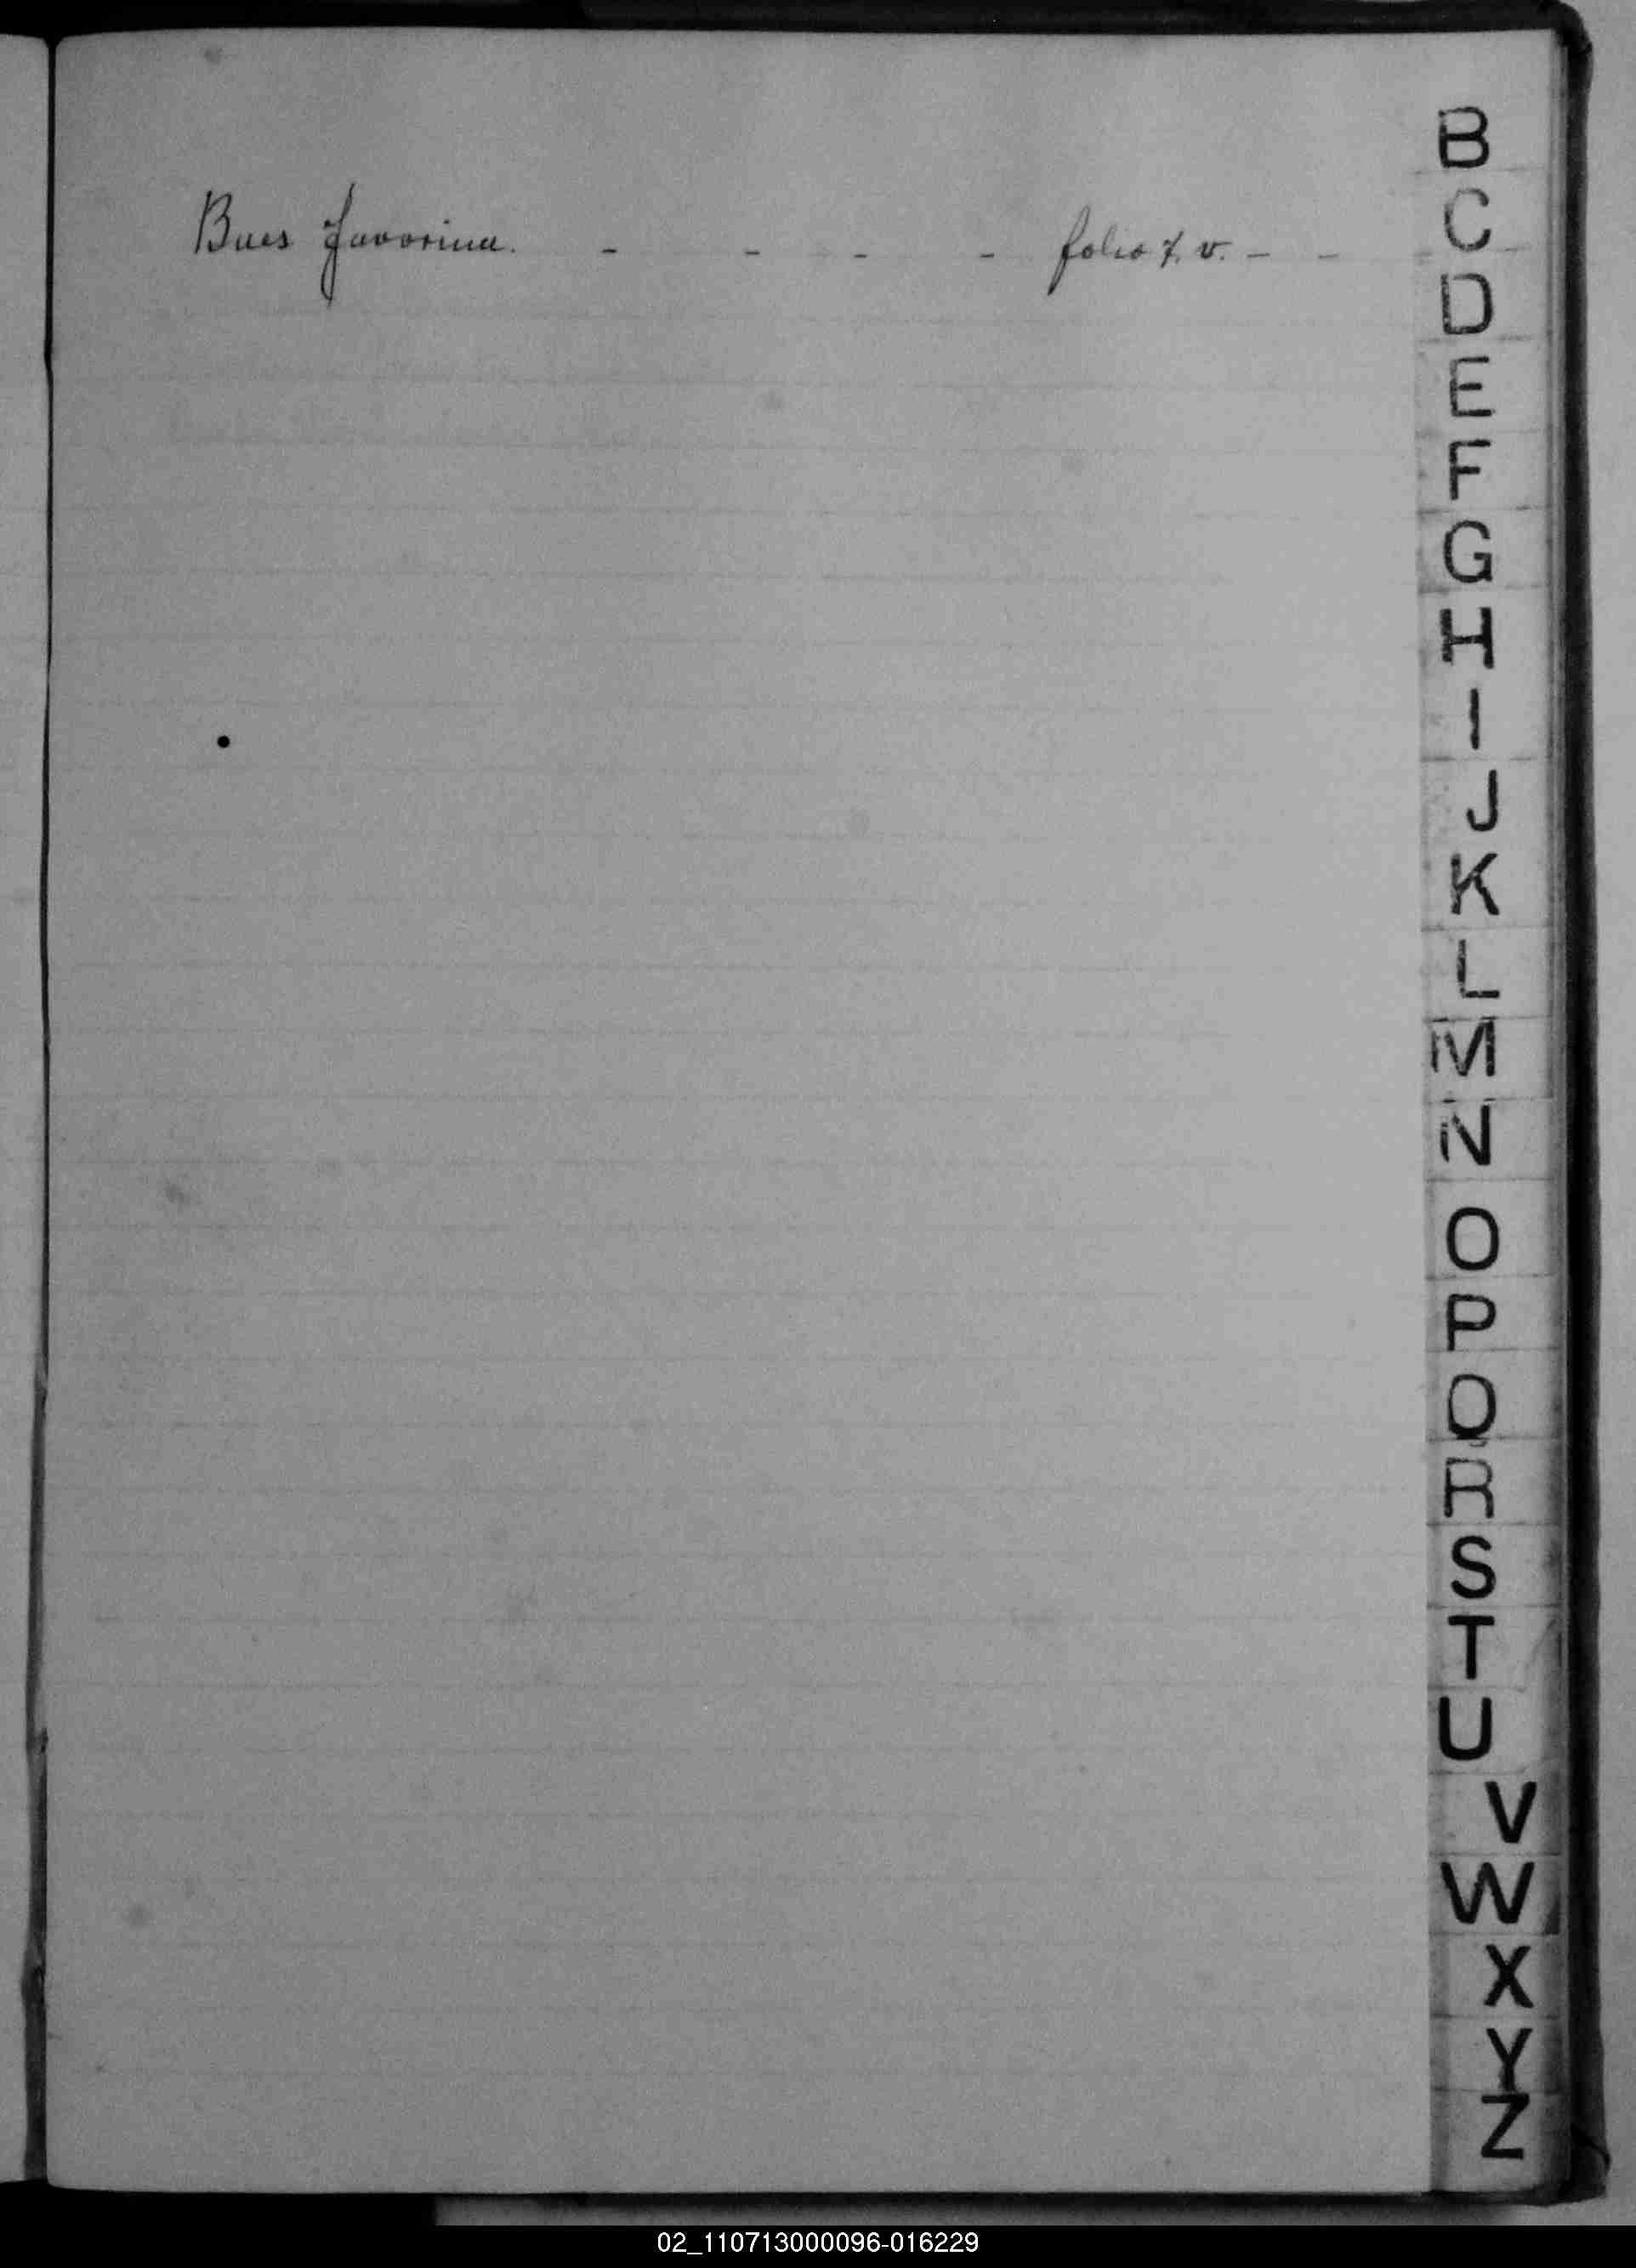 Baes favorina. - - - - folio 7. v. - -
B
C
D
E
F
G
H
I
J
K
L
M
N
O
P
Q
R
S
T
U
V
W
X
Y
Z
02_110713000096-016229